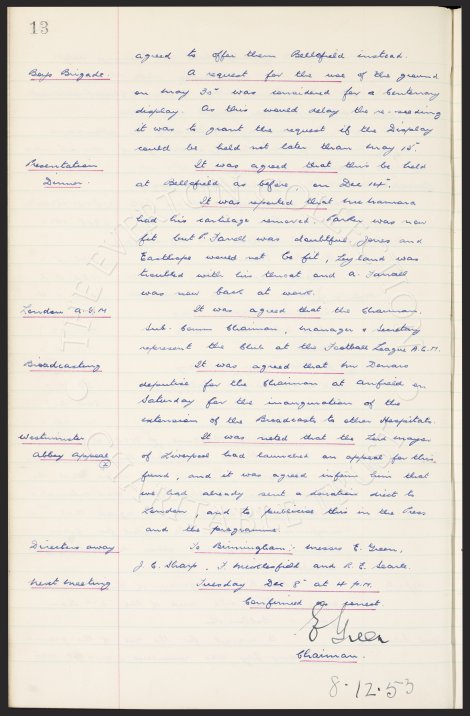 13
agreed to offer them Bellefield instead.
Boys Brigade. A request for the use of the ground
on May 30th was considered for a Centenary
display. As this would delay the re-seeding
it was to grant the request if the Display
could be held not later than May 15th.
Presentation It was agreed that this be held
Dinner. at Bellefield as before, on Dec 14th.
It was reported that McNamara
had his cartilage removed. Parker was now
fit but P. Farrell was doubtful, Jones and
Easthope would not be fit, Leyland was
troubled with his throat and A. Farrall
was now back at work.
London A.G.M It was agreed that the Chairman,
Sub-Comm Chairman, Manager & Secretary
represent the Club at the Football League A.G.M.
Broadcasting It was agreed that Mr Denaro
deputise for the Chairman at Anfield on
Saturday for the inauguration of the
extension of the Broadcasts to other Hospitals.
Westminster It was noted that the Lord Mayor
Abbey Appeal of Liverpool had launched an appeal for this
fund, and it was agreed inform him that
we had already sent a donation direct to
London, and to publicise this in the Press
and the programme.
Directors away To Birmingham:- Messrs E. Green,
J. C. Sharp, F. Micklesfield and R. E. Searle.
Next meeting Tuesday Dec 8th at 4 P.M.
Confirmed as correct
E Green
Chairman.
8.12.53